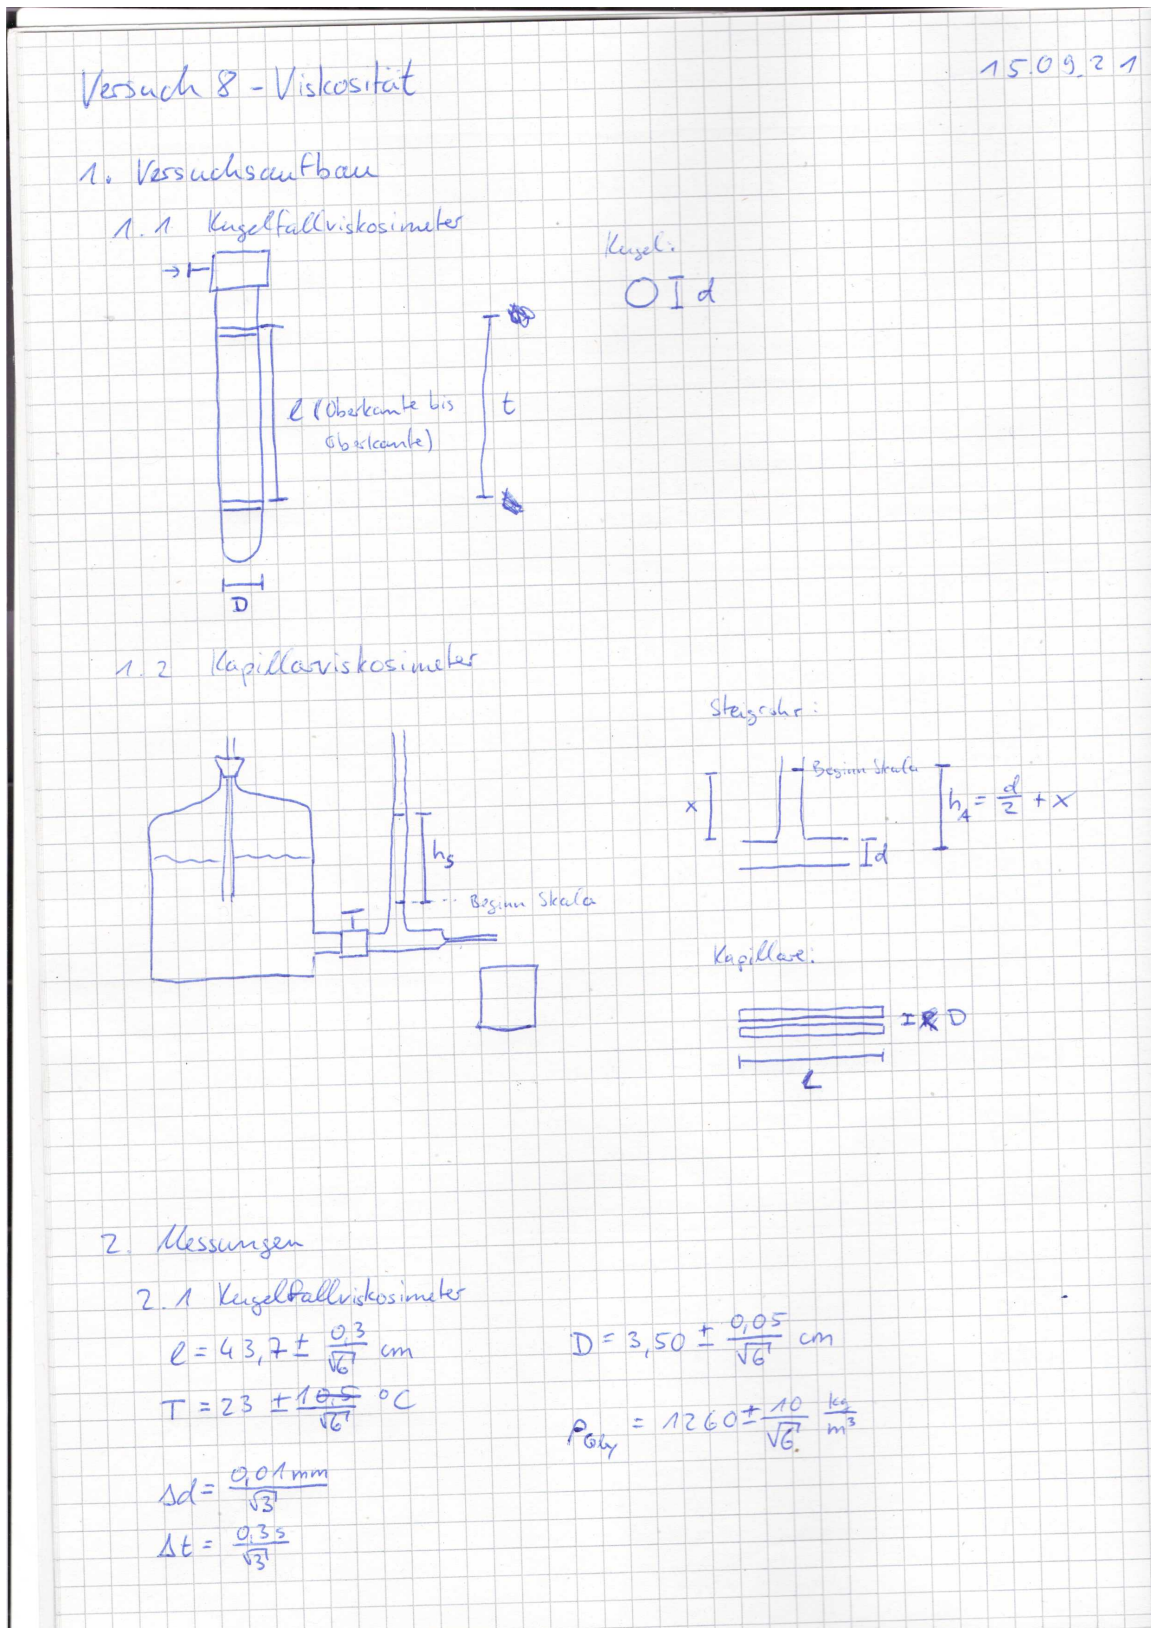 Versuch 8 - Viskosität
15.09.21
1. Versuchsaufbau
1.1 Kugelfallviskosimeter
Kugel:
d
l (Oberkante bis
Oberkante)
t
D
1.2 Kapillarviskosimeter
Steigrohr:
Beginn Skala
x
h_A = d/2 + x
d
h_s
Beginn Skala
Kapillare:
D
L
2. Messungen
2.1 Kugelfallviskosimeter
l = 43,7 ± 0,3/√6 cm
D = 3,50 ± 0,05/√6 cm
T = 23 ± 1/√6 °C
ρ_Gly = 1260 ± 10/√6 kg/m³
Δd = 0,01mm/√3
Δt = 0,3s/√3